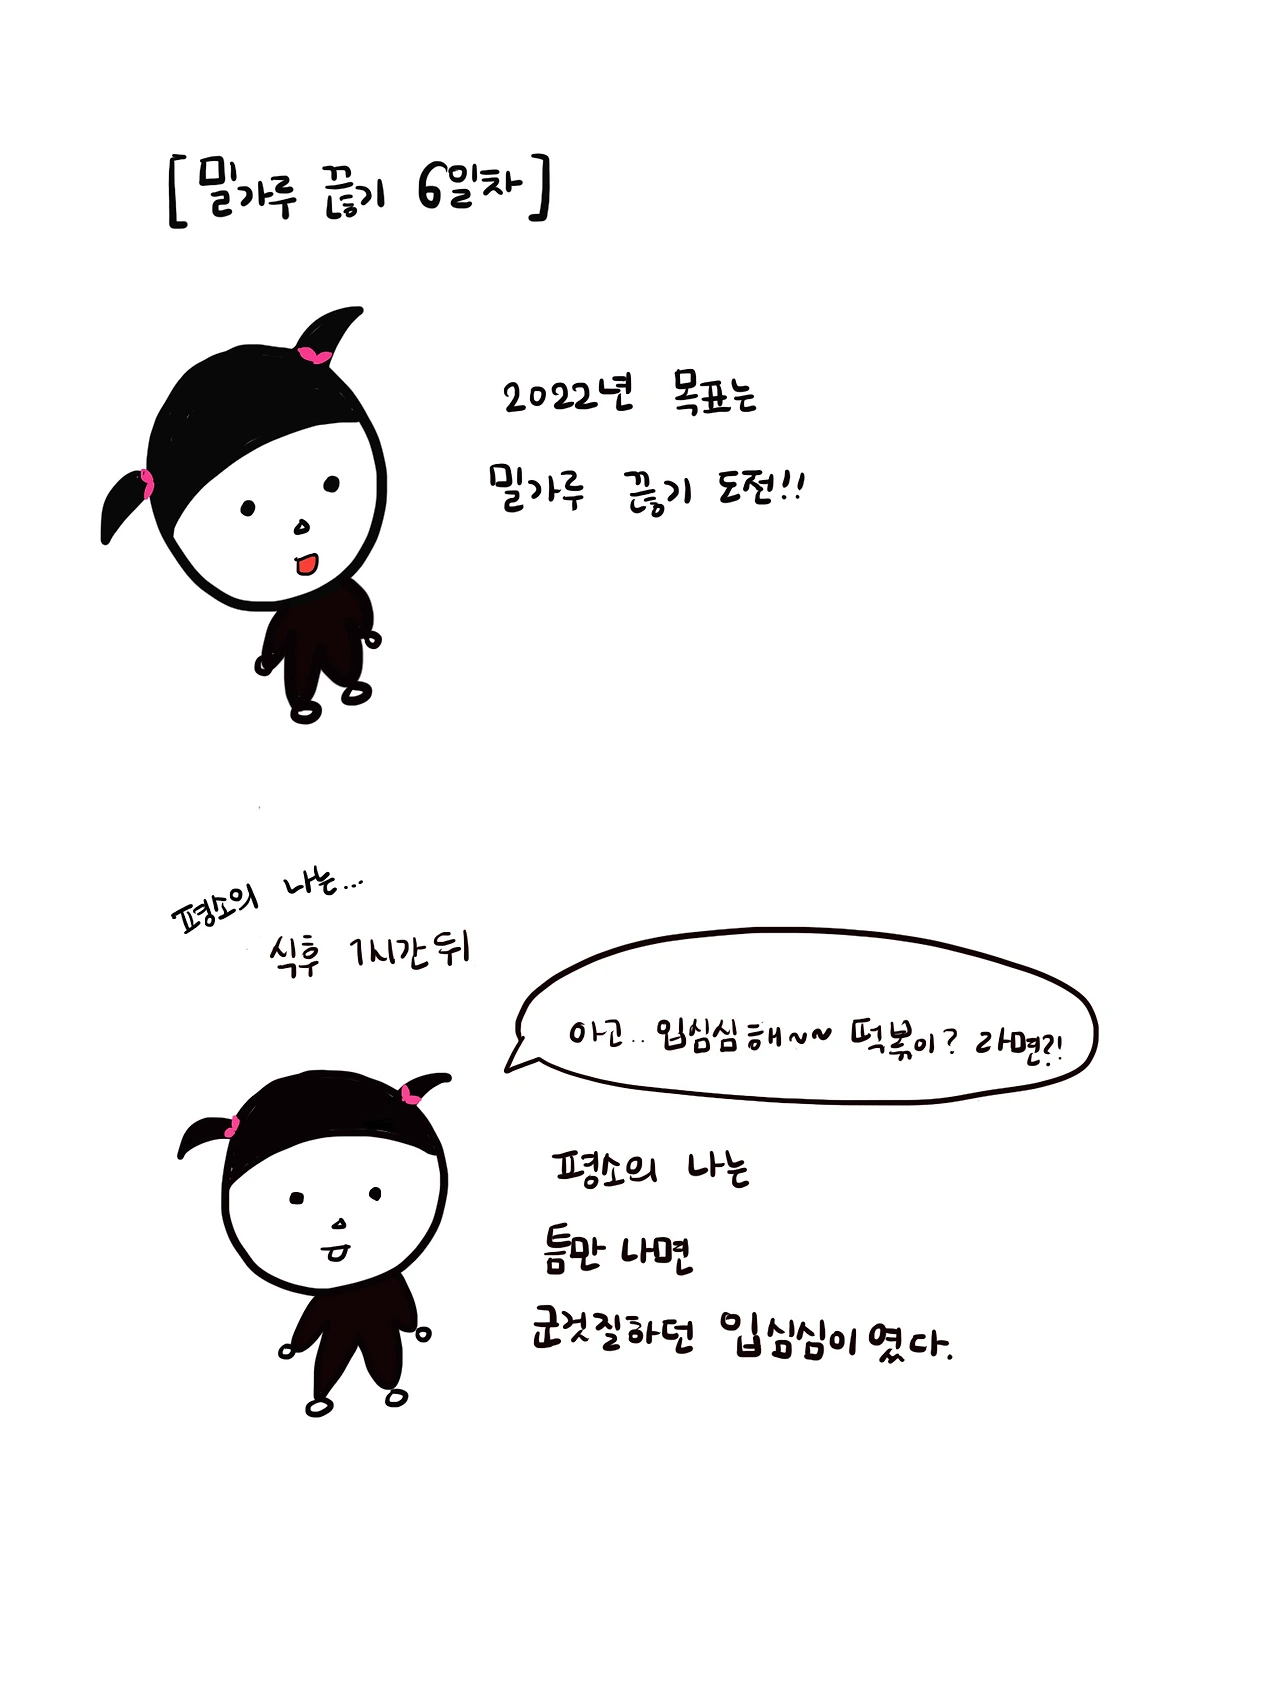 [밀가루 끊기 6일차]
2022년 목표는
밀가루 끊기 도전!!
평소의 나는...
식후 1시간 뒤
아고.. 입심심해~~ 떡볶이? 라면?!
평소의 나는
틈만 나면
군것질하던 입심심이였다.